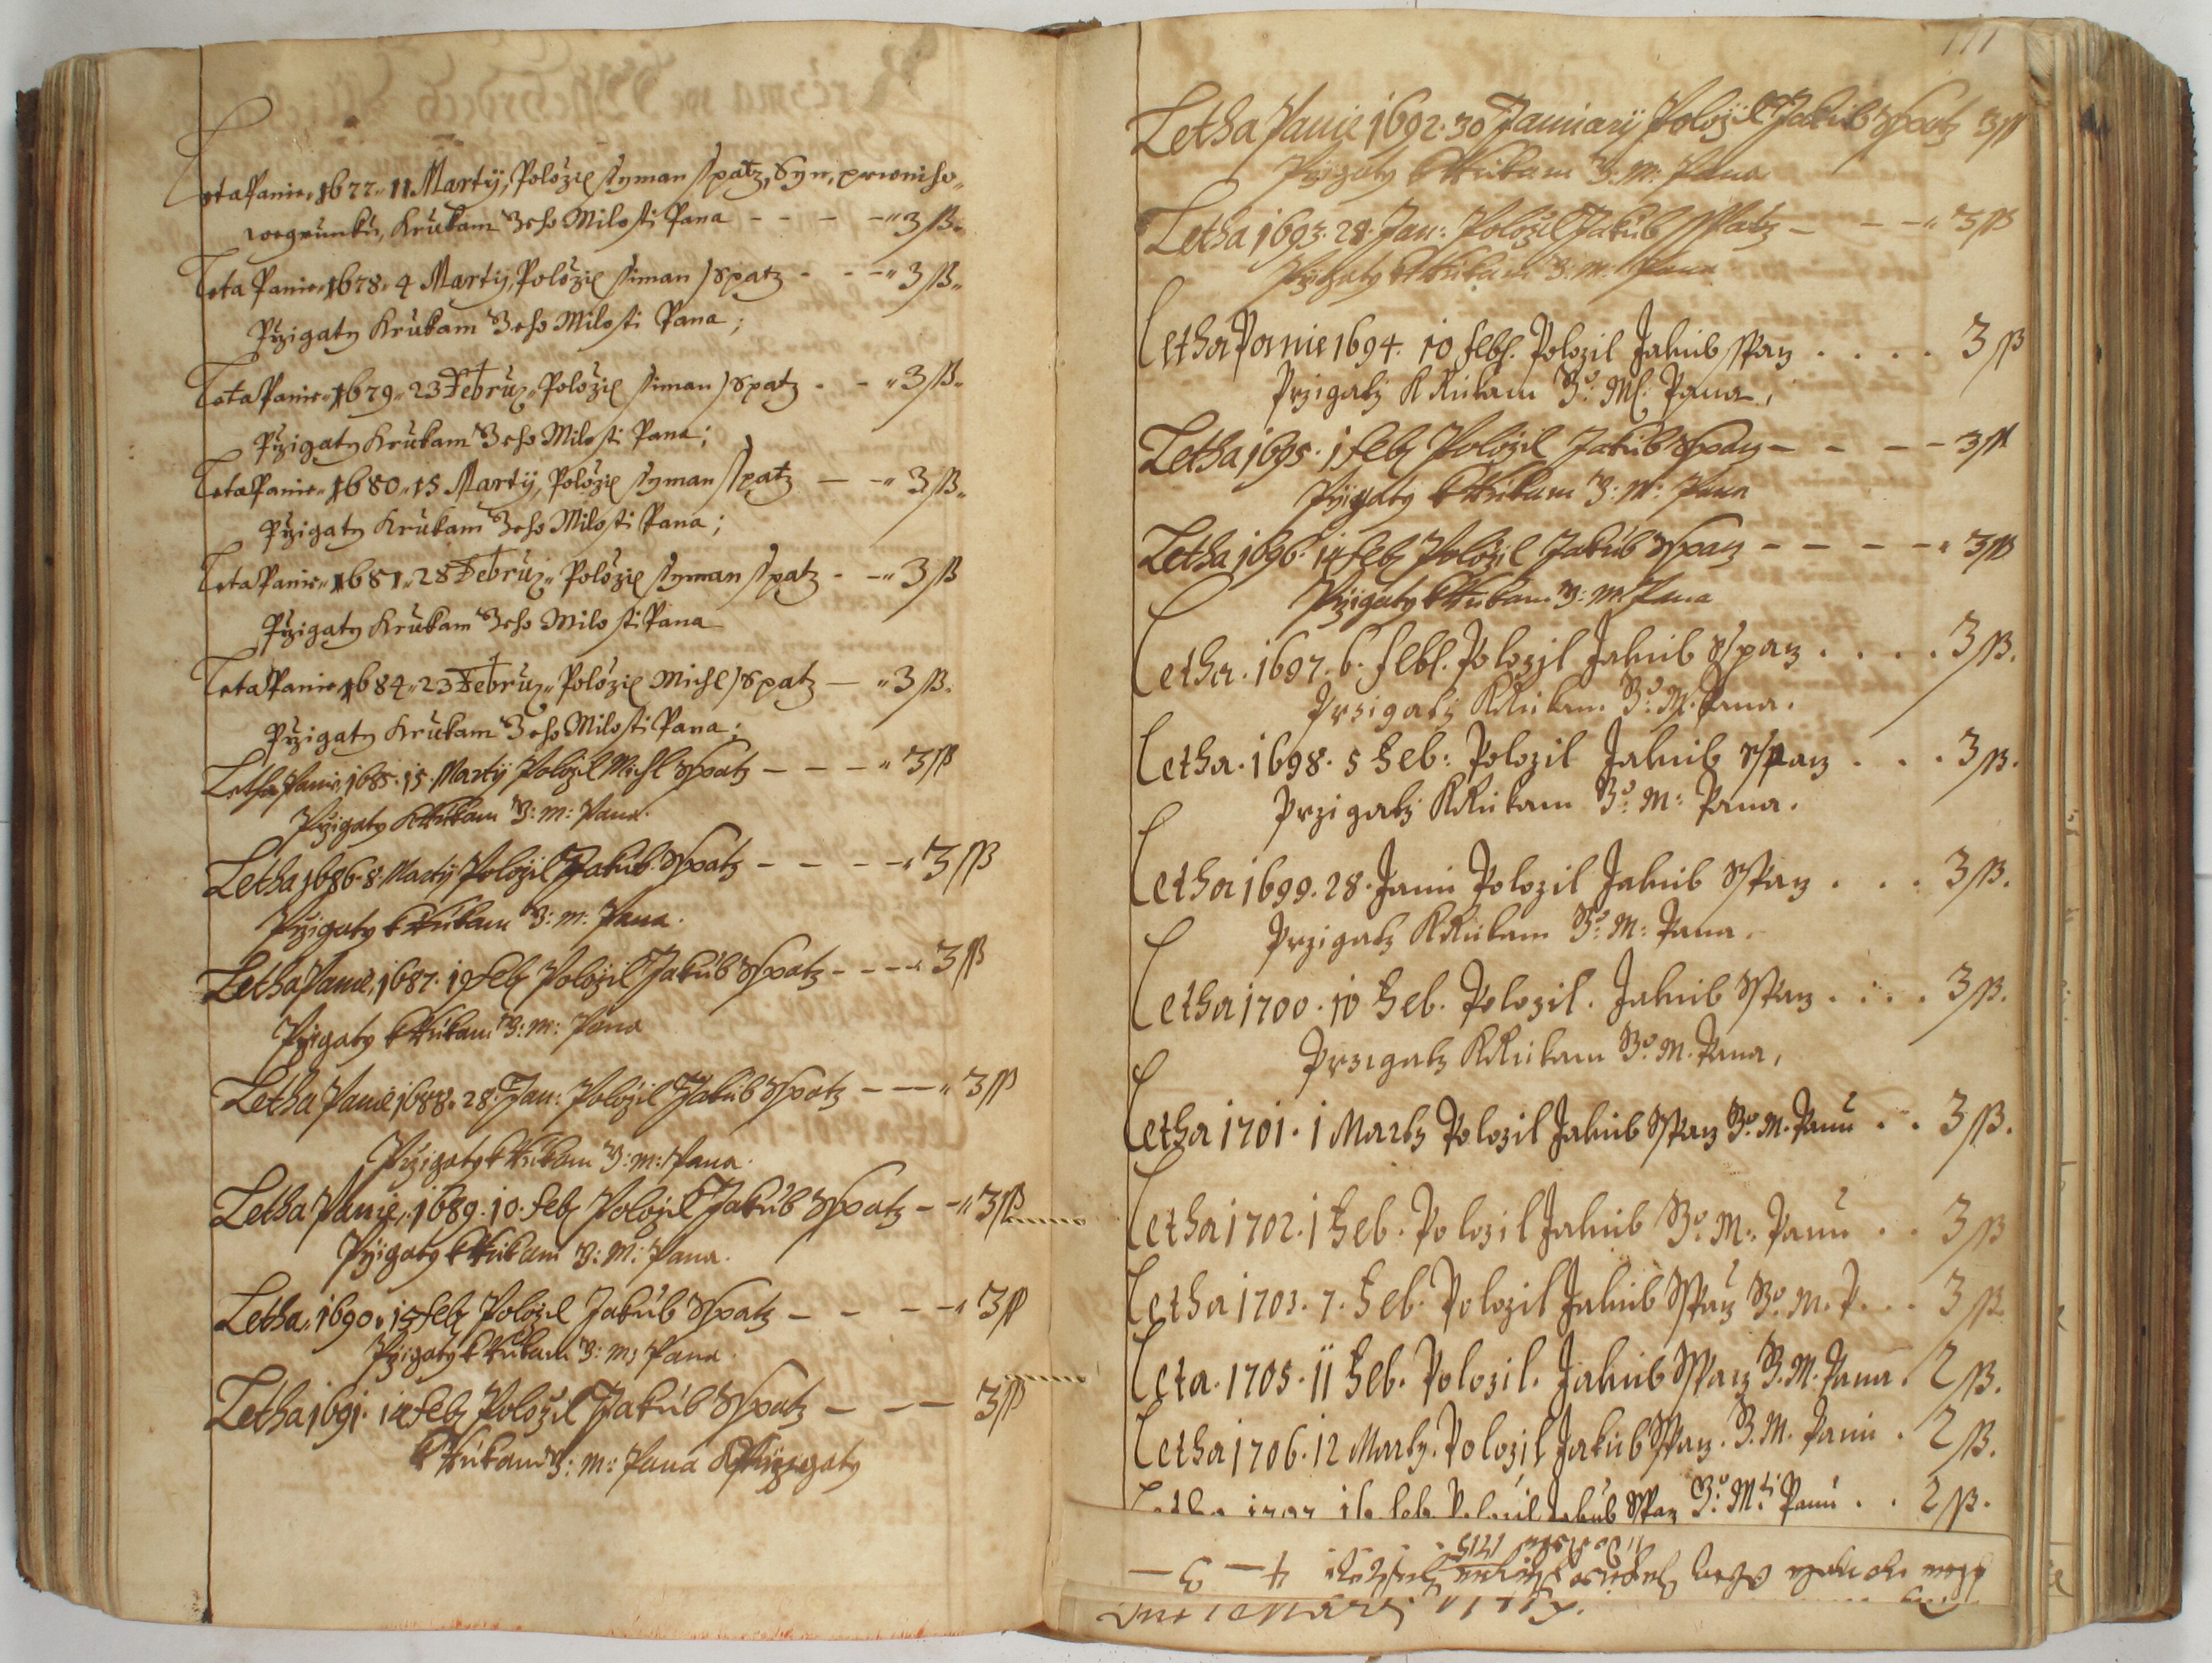 Leta Panie 1677 11 Martÿ, Polożil ſyman ſpatz, Syn,
wegrunku, Krukam Jeho Miloſti Pana - - - - 3 ſß.
Leta Panie 1678 4 Martÿ, Polożil ſiman Spatz - - - 3 ſß
Pržigaty Krukam Jeho Miloſti Pana;
Leta Panie 1679 23 Febru: Polożil ſiman Spatz - - 3 ſß.
Pržigaty Krukam Jeho Miloſti Pana;
Leta Panie 1680 15 Martÿ, Polożil ſyman ſpatz — - 3 ſß
Pržigaty Krukam Jeho Miloſti Pana;
Leta Panie 1681 28 Febru: Polożil ſyman ſpatz - - 3 ſß
Pržigaty Krukam Jeho Miloſti Pana
Leta Panie 1684 23 Febru: Polożil Michl Spatz — 3 ſß.
Pržigaty Krukam Jeho Miloſti Pana;
Letha Panie 1685. 15. Martÿ Položil Michl Spatz — — — 3 ſß
Pržigaty kRukam J: M: Pana.
Letha 1686. 8. Martÿ Položil Jakub Spatz — — — 3 ſß
Pržigaty kRukam J: M: Pana.
Letha Panie, 1687. 19 Feb Položil Jakub Spatz - - - 3 ſß
Pržigaty kRukam J: M: Pana
Letha Panie 1688. 28. Jan: Položil Jakub Spatz — — 3 ſß
Pržigaty kRukam J: M: Pana.
Letha Panie, 1689. 10. Feb Položil Jakub Spatz - - 3 ſß
Pržigaty kRukam J: M: Pana.
Letha, 1690. 15 Feb Položil Jakub Spatz — - — - 3 ſß
Pržigaty kRukam J: M: Pana.
Letha 1691. 14 Feb Položil Jakub Spatz — — — 3 ſß
kRukam J: M: Pana Pržigaty
111
Letha Panie 1692. 30 Januarÿ Položil Jakub Spatz 3 ſß
Pržigaty kRukam J: M: Pana
Letha 1693. 28. Jan: Položil Jakub Spatz — — - 3 ſß
Pržigaty kRukam J: M: Pana
Letha Panie 1694. 10 febr. Polozil Jakub Spaz . . . . 3 ſß
Przigaty K Rukam Jº. Ml. Pana.
Letha 1695. 1 Feb Položil Jakub Spaz — — — — 3 ſß
Pržigaty kRukam J: M: Pana
Letha 1696. 14 Feb Položil Jakub Spaz — — — — 3 ſß
Pržigaty kRukam J: M: Pana
Letha. 1697. 6. febr. Polozil Jakub Spaz . . . . 3 ſß.
Przigaty KRukam Jº: M. Pana.
Letha. 1698. 5 Feb: Polozil Jakub Spaz . . . 3 ſß.
Przigaty KRukam Jº: M: Pana.
Letha 1699. 28. Janu Polozil Jakub Spaz . . . 3 ſß.
Przigaty KRukam Jº: M: Pana.
Letha 1700. 10 Feb. Polozil. Jakub Spaz . . . . 3 ſß.
Przigaty KRukam Jº. M. Pana,
Letha 1701. 1 Marty Polozil Jakub Spaz Jº. M. Panu . . 3 ſß.
Letha 1702. 1 Feb. Polozil Jakub Jº. M: Panu . . 3 ſß
Letha 1703. 7. Feb. Polozil Jakub Spaz Jº. M. P. . . 3 ſß.
Leta. 1705. 11 Feb. Polozil. Jakub Spaz J. M. Panu. 2 ſß.
Letha 1706. 12 Marty. Polozil Jakub Spaz. J. M. Panu . 2 ſß.
Letha 1707 16 feb Polozil Jakub Spaz Jº: M: Panu . . 2 ſß.
1715
4 — 3 —